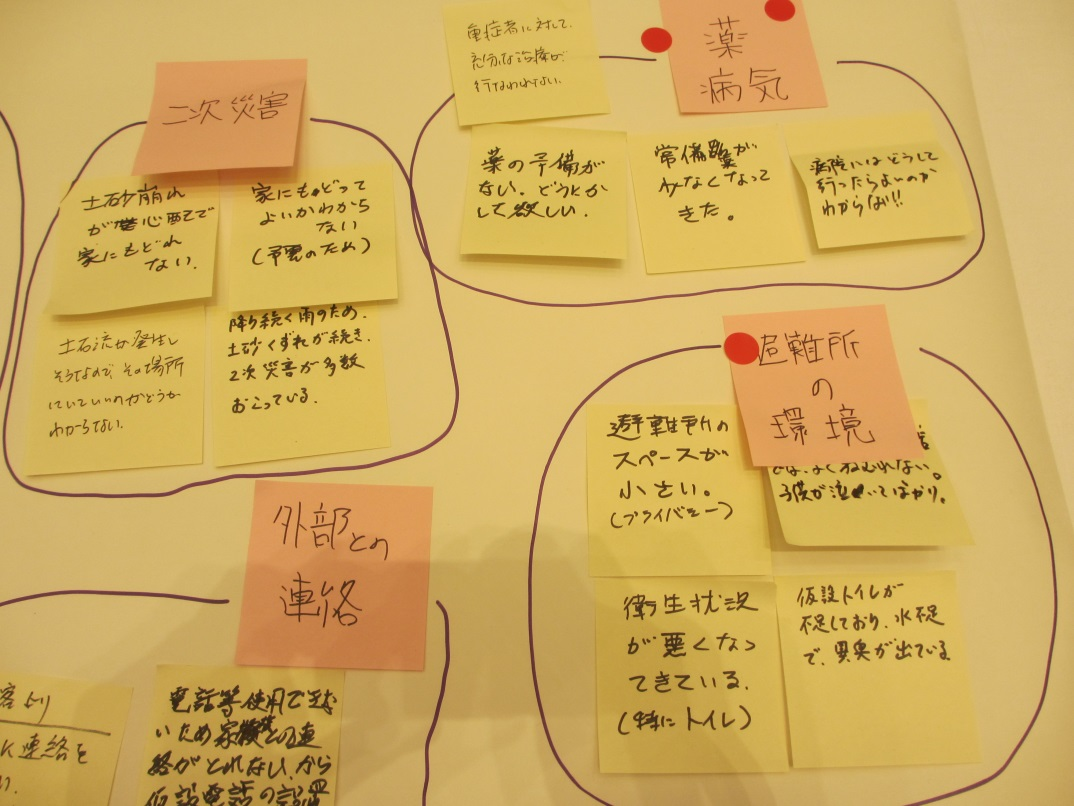 二次災害
土砂崩れ
が心配で
家にもどれ
ない.
家にもどって
よいかわから
ない
(予震のため)
土石流が発生し
そうなので、その場所
にいていいのかどうか
わからない.
降り続く雨のため.
土砂くずれが続き.
2次災害が多数
おこっている.
薬
病気
重症者に対して.
充分な治療が.
行なわれない.
薬の予備が
ない. どうにか
して欲しい.
常備薬が
少なくなって
きた。
病院にはどうして
行ったらよいのか
わからない!!
避難所
の
環境
避難所の
スペースが
小さい。
(プライバシー)
では、よくねむれない。
子供が泣いてばかり。
衛生状況
が悪くなっ
てきている.
(特にトイレ)
仮設トイレが
不足しており. 水不足
で、異臭が出ている
外部との
連絡
電話等使用できな
いため家族との連
絡がとれない. から
仮設電話の設置
より
連絡を